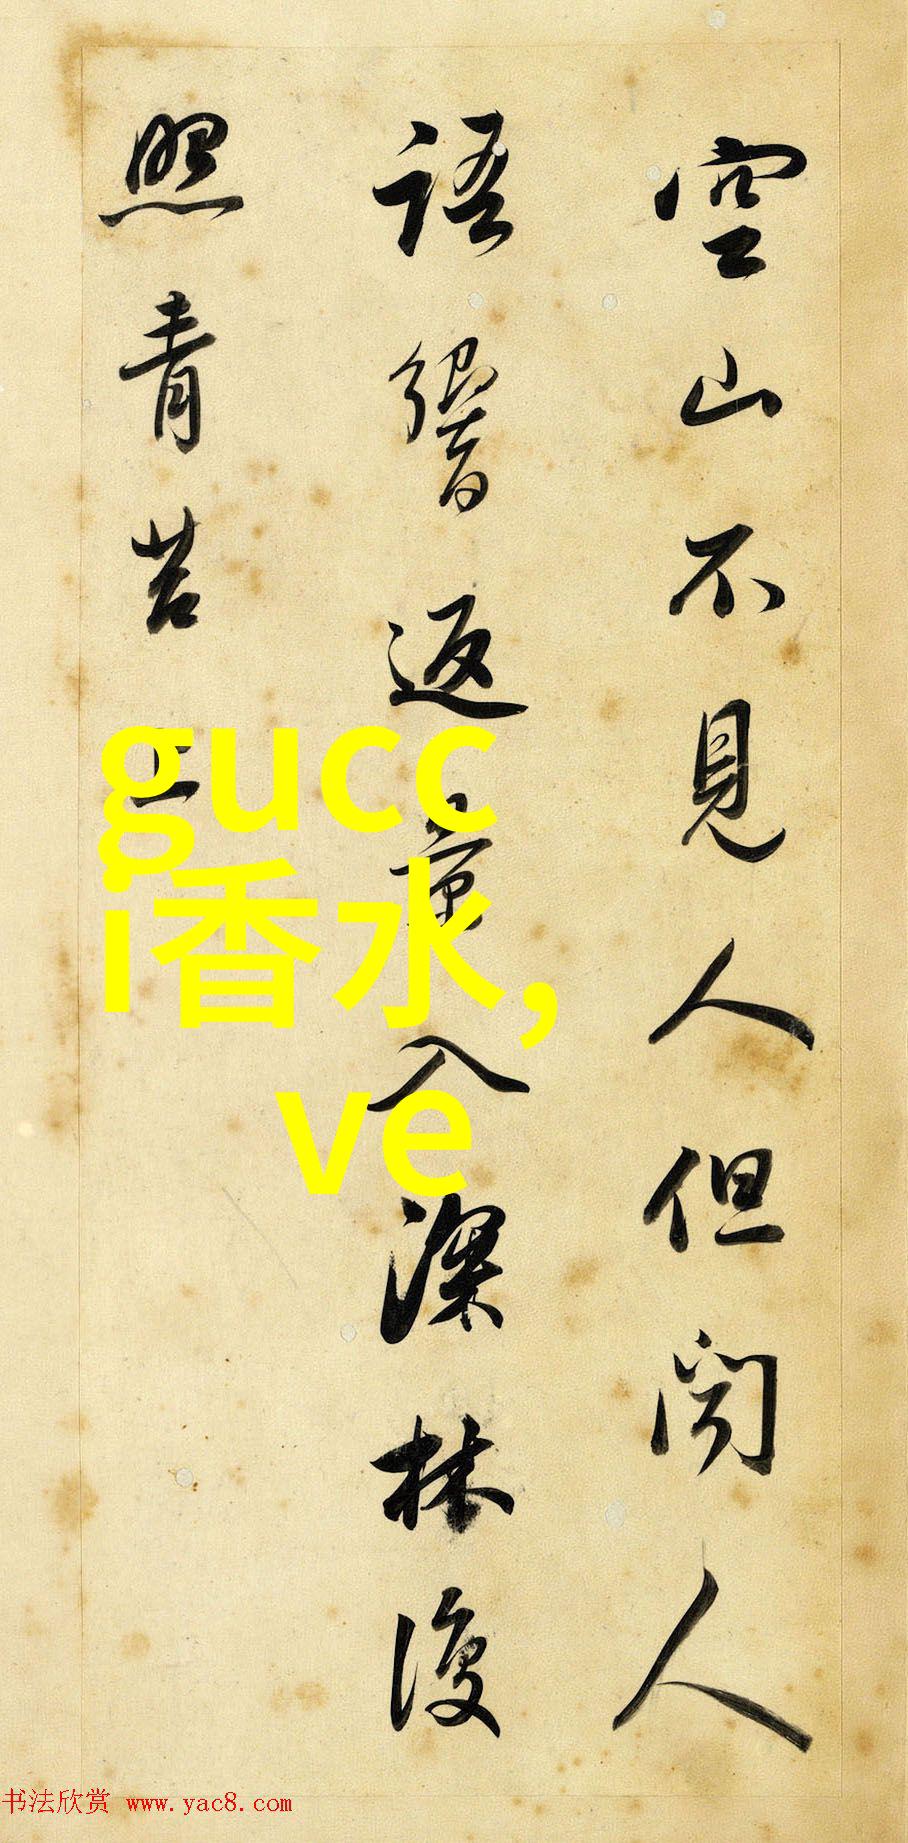 空山不見人但聞人
語響返景入深林復
照青苔上
gucc
i香水,
ve
书法欣赏 www.yac8.com